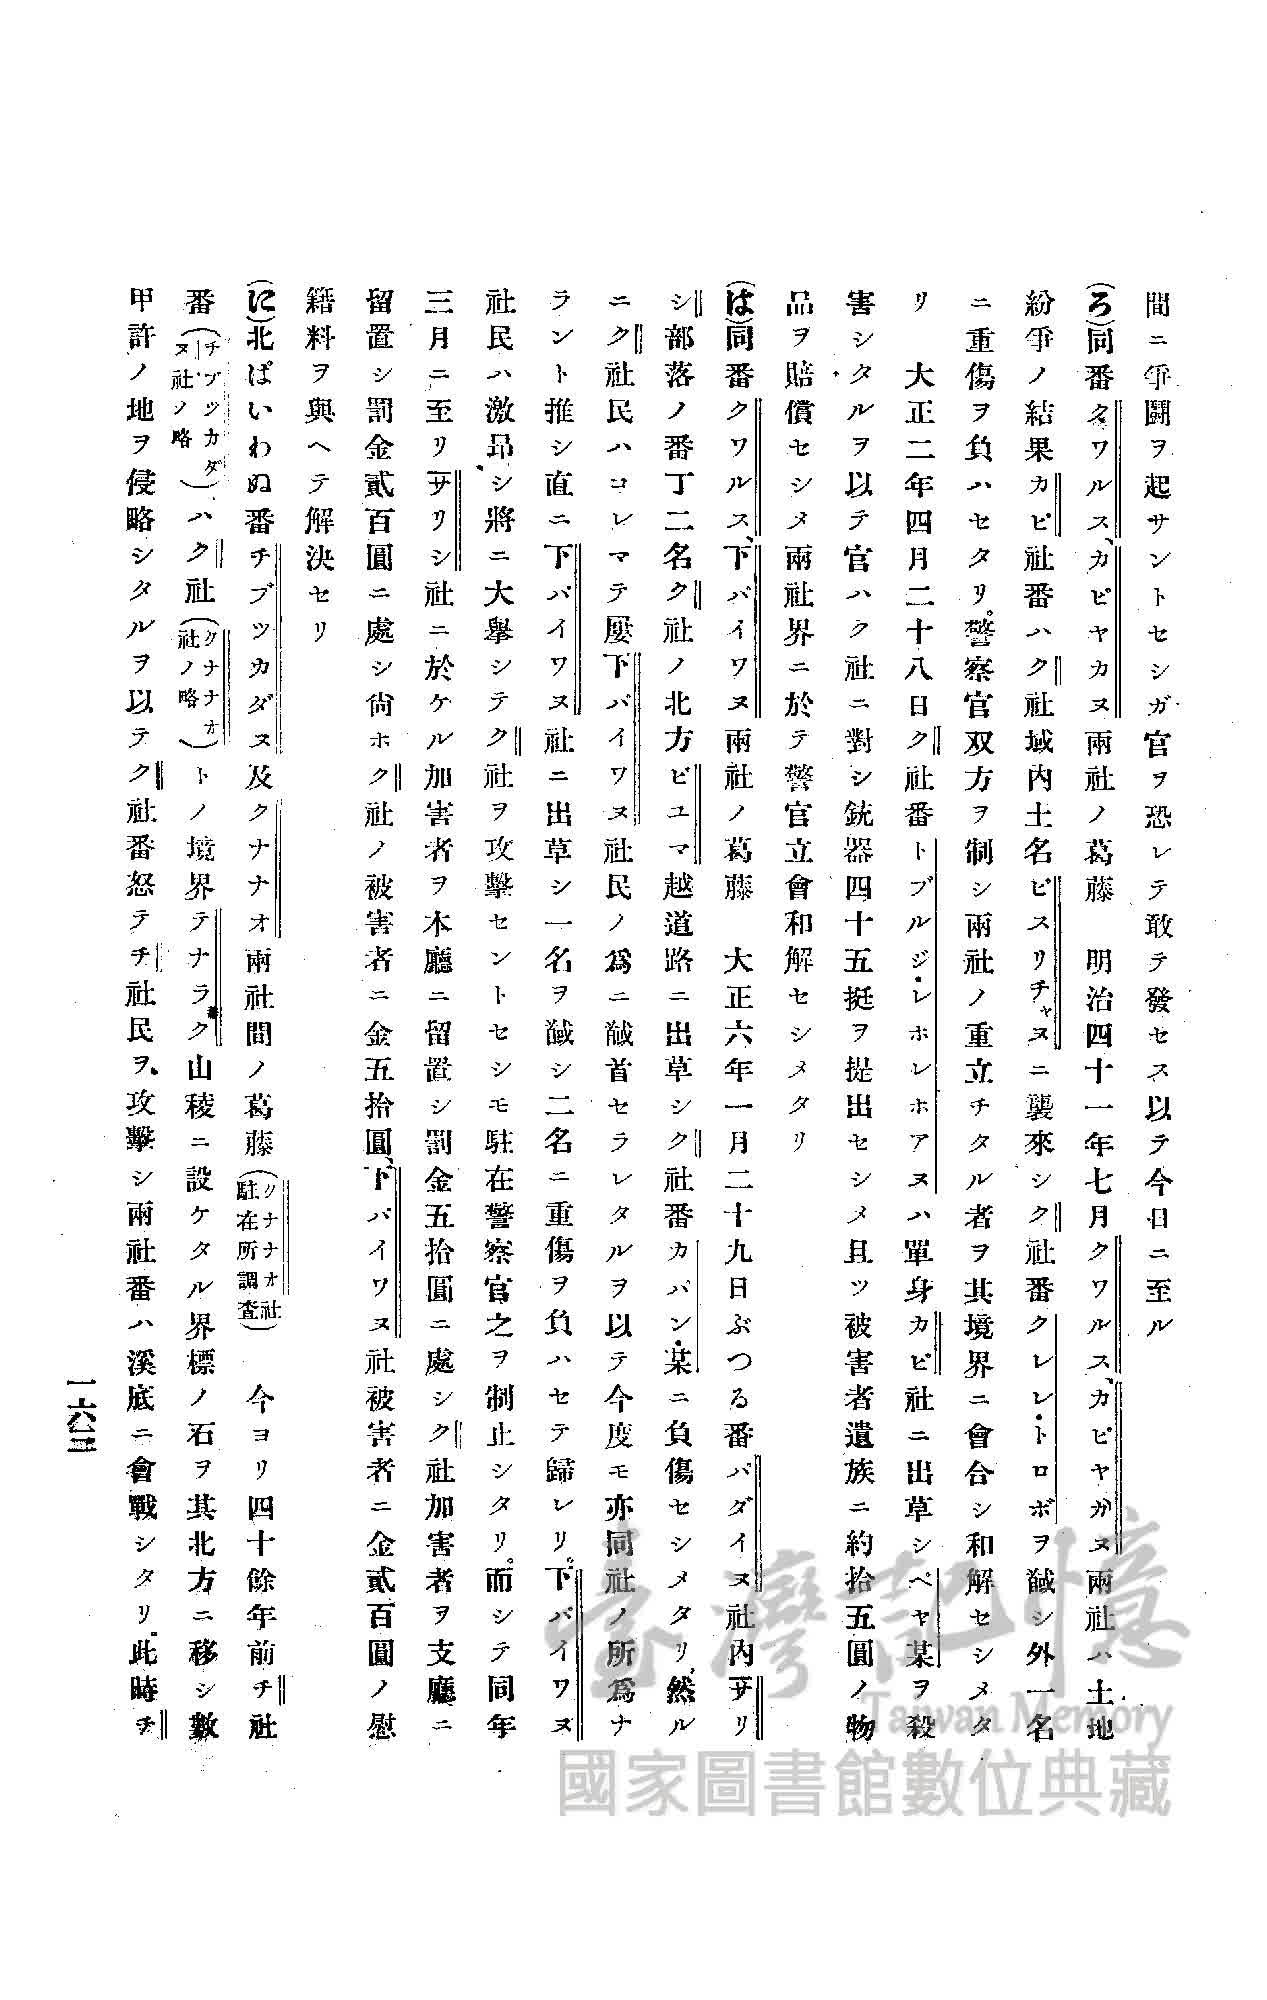 間ニ爭鬪ヲ起サントセシガ官ヲ恐レテ敢テ發セス以テ今日ニ至ル
(ろ)同番クワルス、カピヤカヌ兩社ノ葛藤　明治四十一年七月クワルス、カピヤカヌ兩社ハ土地
紛爭ノ結果カピ社番ハク社域内土名ピスリチャヌニ襲來シク社番クレレ・トロボヲ馘シ外一名
ニ重傷ヲ負ハセタリ。警察官双方ヲ制シ兩社ノ重立チタル者ヲ其境界ニ會合シ和解セシメタ
リ　大正二年四月二十八日ク社番トブルジ・レホレホアヌハ單身カピ社ニ出草シペヤ某ヲ殺
害シタルヲ以テ官ハク社ニ對シ銃器四十五挺ヲ提出セシメ且ツ被害者遺族ニ約拾五圓ノ物
品ヲ賠償セシメ兩社界ニ於テ警官立會和解セシメタリ
(は)同番クワルス、下パイワヌ兩社ノ葛藤　大正六年一月二十九日ぶつる番パダイヌ社内サリ
シ部落ノ番丁二名ク社ノ北方ピユマ越道路ニ出草シク社番カバン・某ニ負傷セシメタリ、然ル
ニク社民ハコレマテ屢下パイワヌ社民ノ爲ニ馘首セラレタルヲ以テ今度モ亦同社ノ所爲ナ
ラント推シ直ニ下パイワヌ社ニ出草シ一名ヲ馘シ二名ニ重傷ヲ負ハセテ歸レリ。下パイワヌ
社民ハ激昂シ將ニ大擧シテク社ヲ攻擊セントセシモ駐在警察官之ヲ制止シタリ。而シテ同年
三月ニ至リサリシ社ニ於ケル加害者ヲ本廳ニ留置シ罰金五拾圓ニ處シク社加害者ヲ支廳ニ
留置シ罰金貳百圓ニ處シ尙ホク社ノ被害者ニ金五拾圓、下パイワヌ社被害者ニ金貳百圓ノ慰
籍料ヲ與ヘテ解決セリ
(に)北ぱいわぬ番チブツカダヌ及クナナオ兩社間ノ葛藤(クナナオ社駐在所調査)　今ヨリ四十餘年前チ社
番(チブツカダヌ社ノ略)ハク社(クナナオ社ノ略)トノ境界テナラク山稜ニ設ケタル界標ノ石ヲ其北方ニ移シ數
甲許ノ地ヲ侵略シタルヲ以テク社番怒テチ社民ヲ攻擊シ兩社番ハ溪底ニ會戰シタリ。此時チ
一六三
臺灣記憶
Taiwan Memory
國家圖書館數位典藏